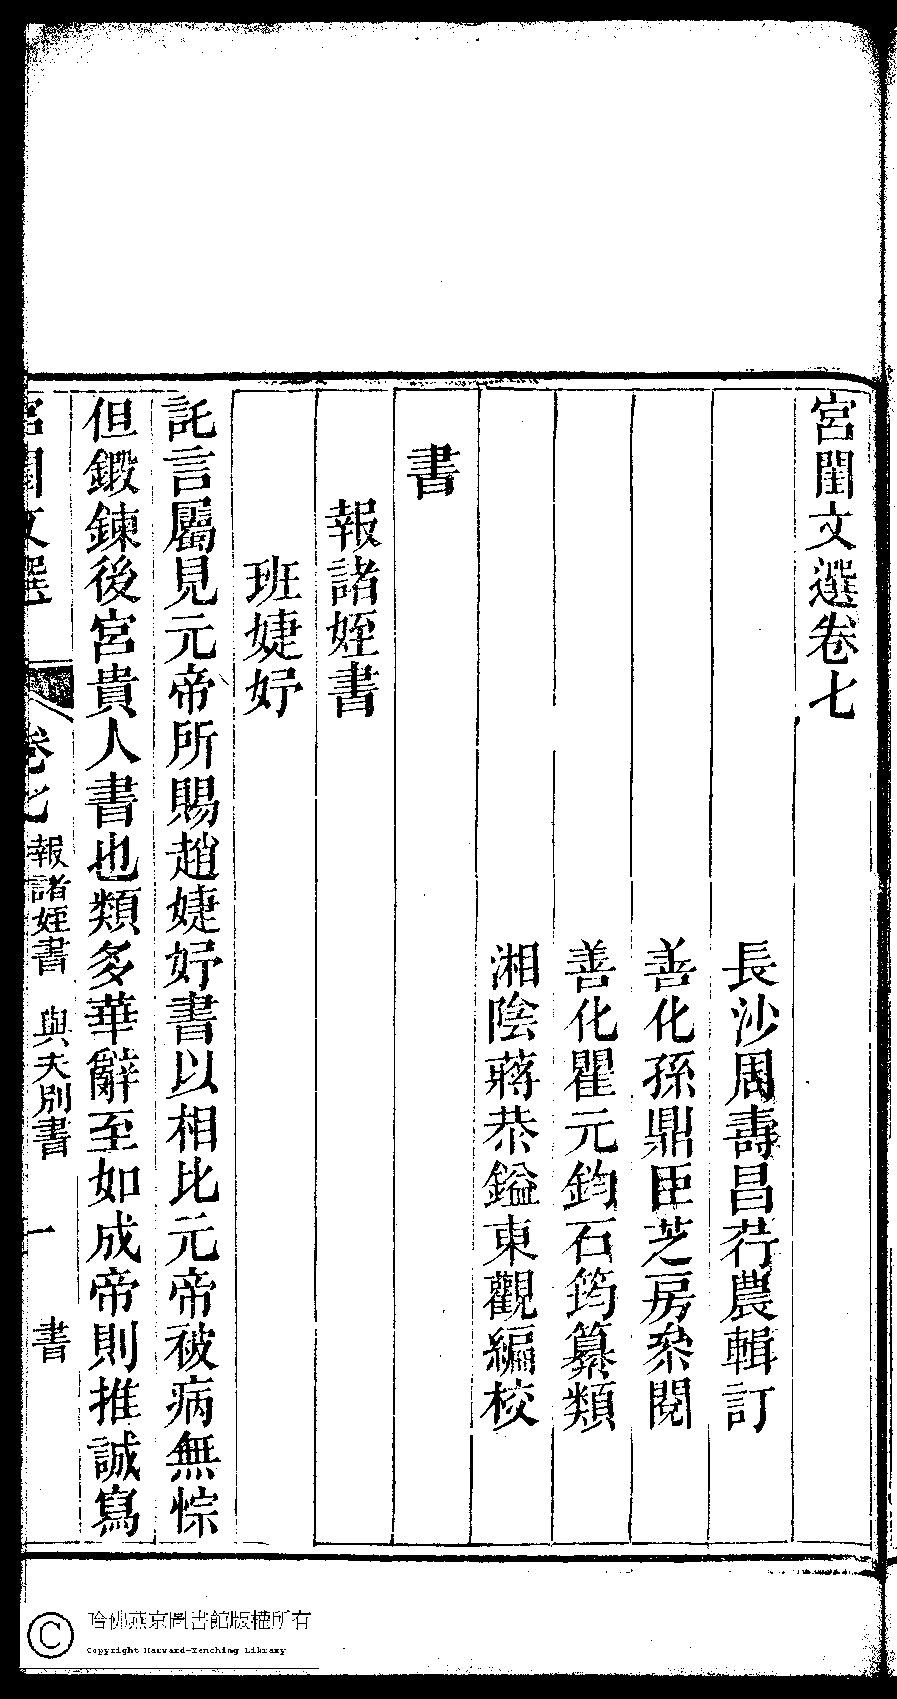 宮閨文選卷七
長沙周壽昌荇農輯訂
善化孫鼎臣芝房叅閱
善化瞿元鈞石筠纂類
湘陰蔣恭鎰東觀編校
書
報諸姪書
班婕妤
託言屬見元帝所賜趙婕妤書以相比元帝被病無悰
但鍛鍊後宮貴人書也類多華辭至如成帝則推誠寫
宮閨文選 卷七 報諸姪書 與夫別書 一 書
哈佛燕京圖書館版權所有
Copyright Harvard-Yenching Library